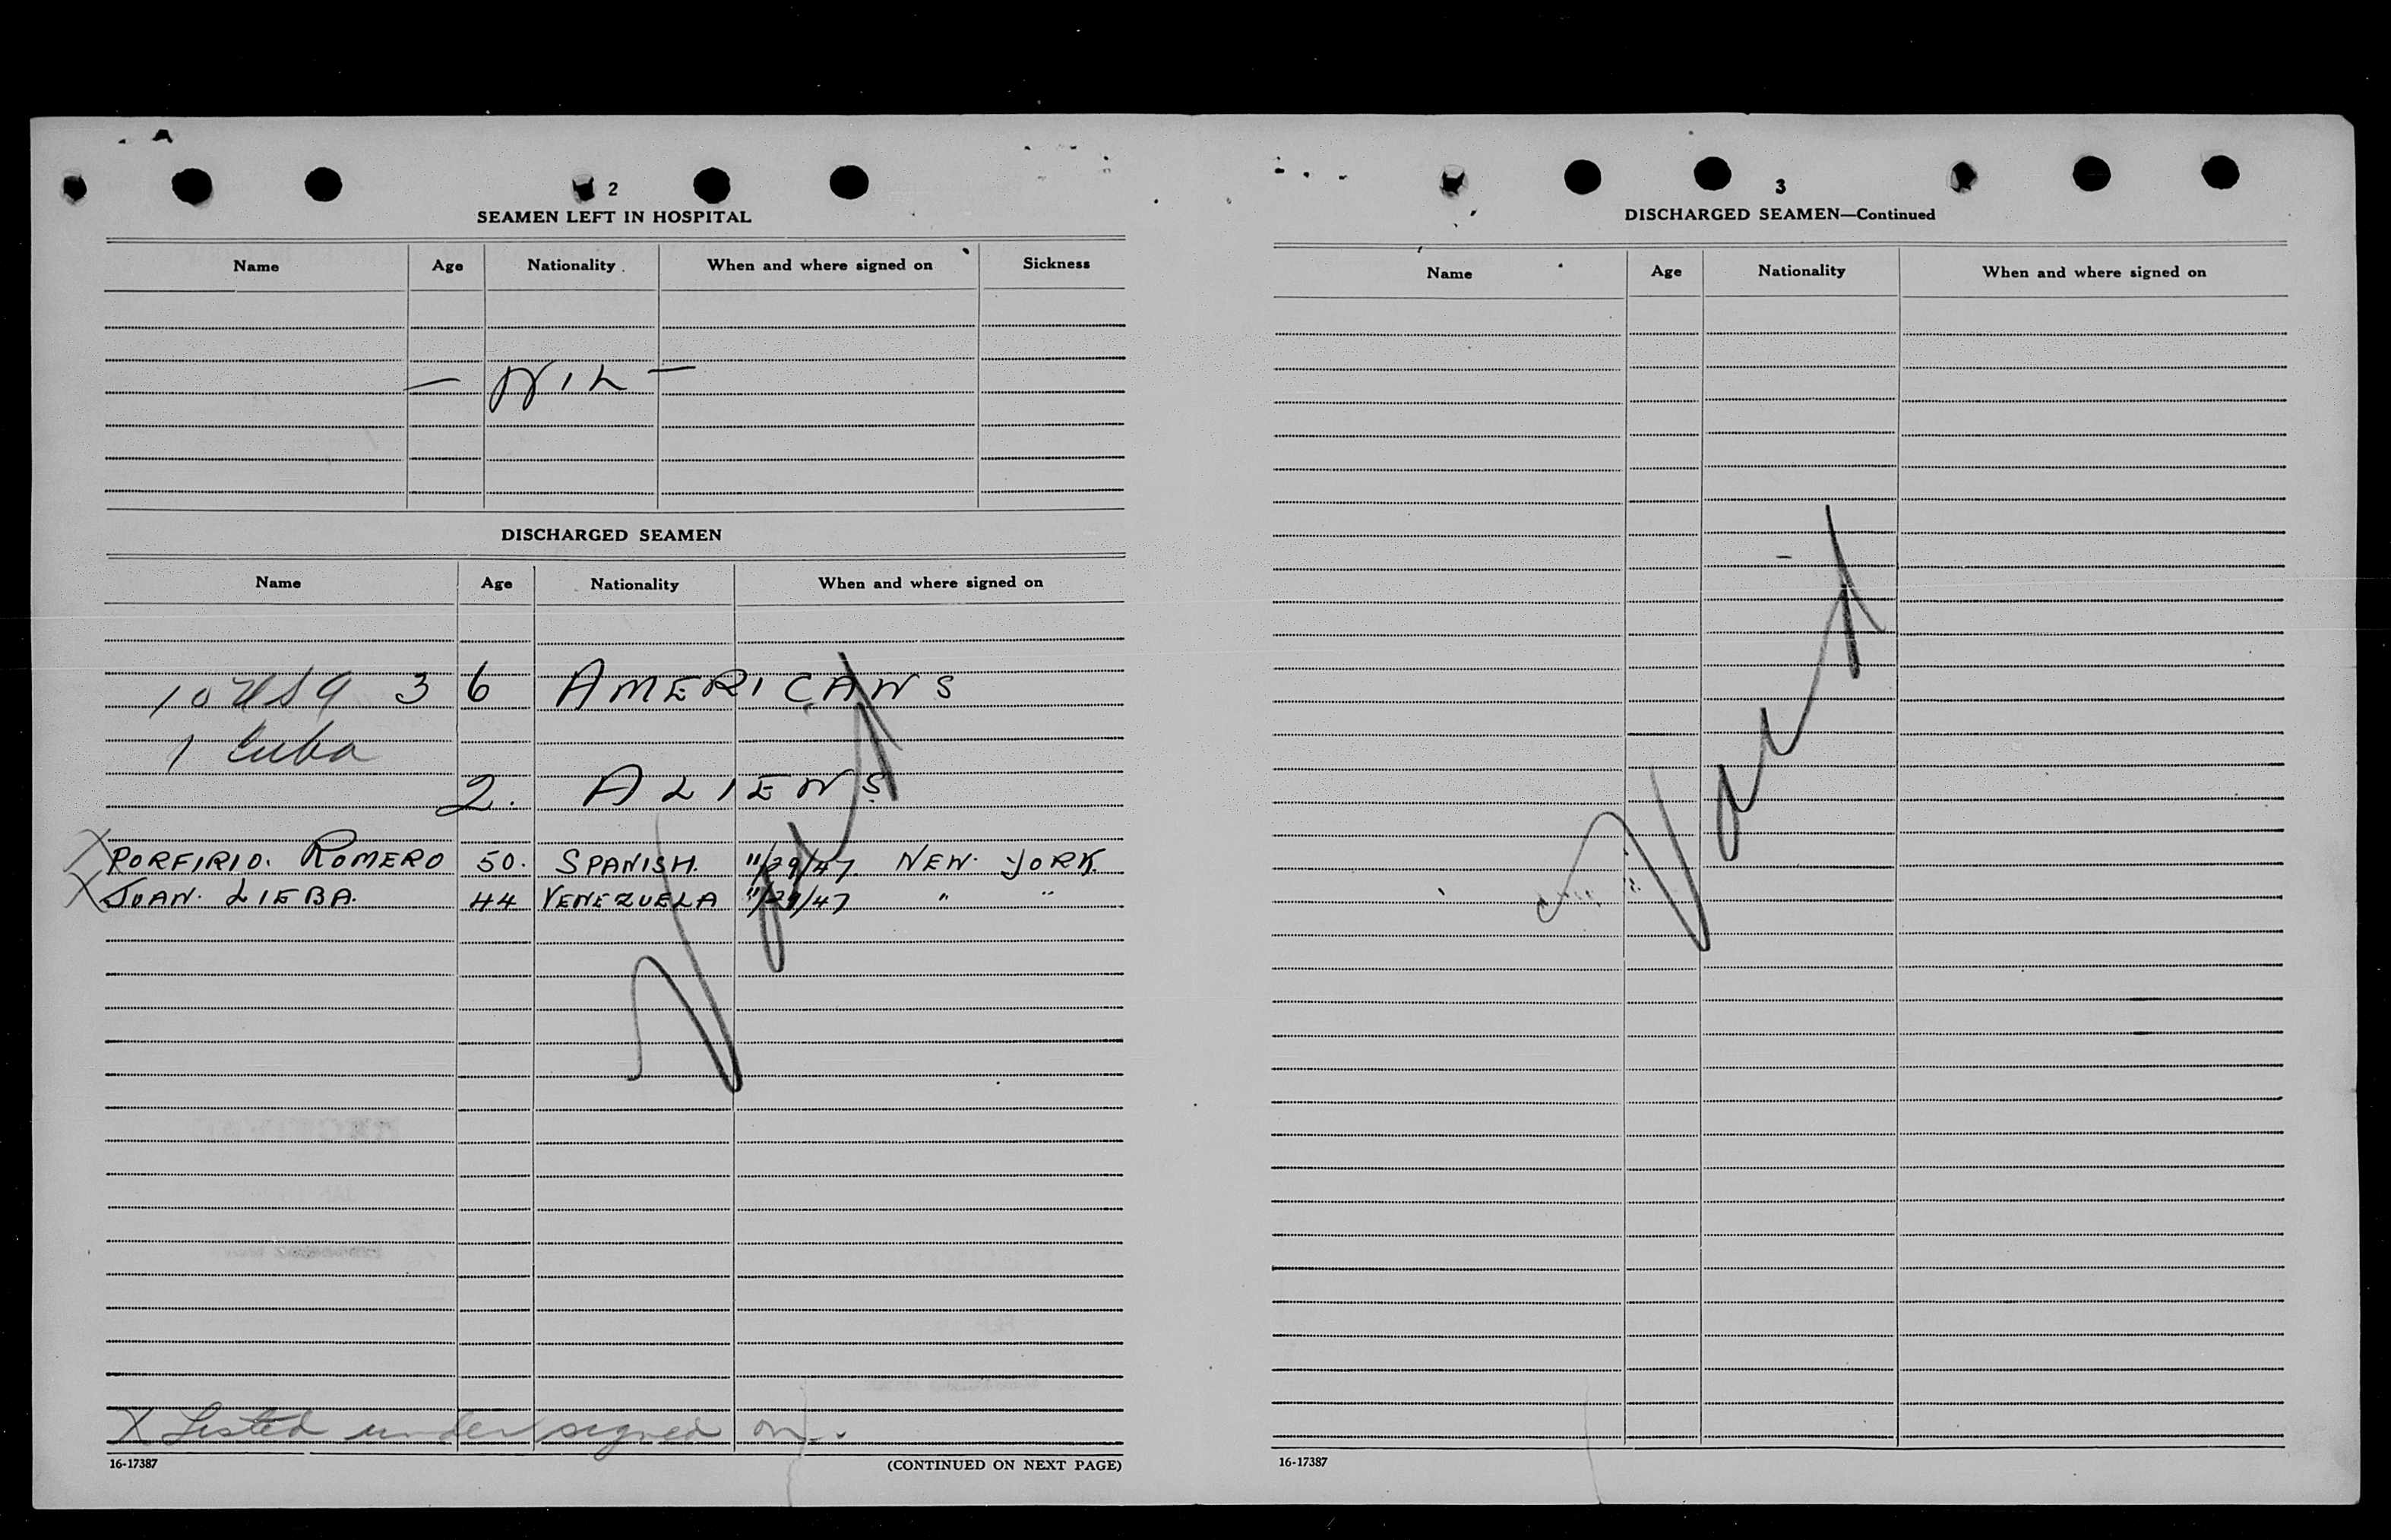 2
SEAMEN LEFT IN HOSPITAL
Name Age Nationality When and where signed on Sickness
— NIL —
DISCHARGED SEAMEN
Name Age Nationality When and where signed on
10 USA 36 AMERICANS
1 Cuba
2. ALIENS
X PORFIRIO. ROMERO 50. SPANISH. 11/29/47 NEW YORK.
X JUAN. LIEBA. 44 VENEZUELA 11/29/47 " "
X Listed under signed on.
16-17387 (CONTINUED ON NEXT PAGE)
3
DISCHARGED SEAMEN—Continued
Name Age Nationality When and where signed on
16-17387